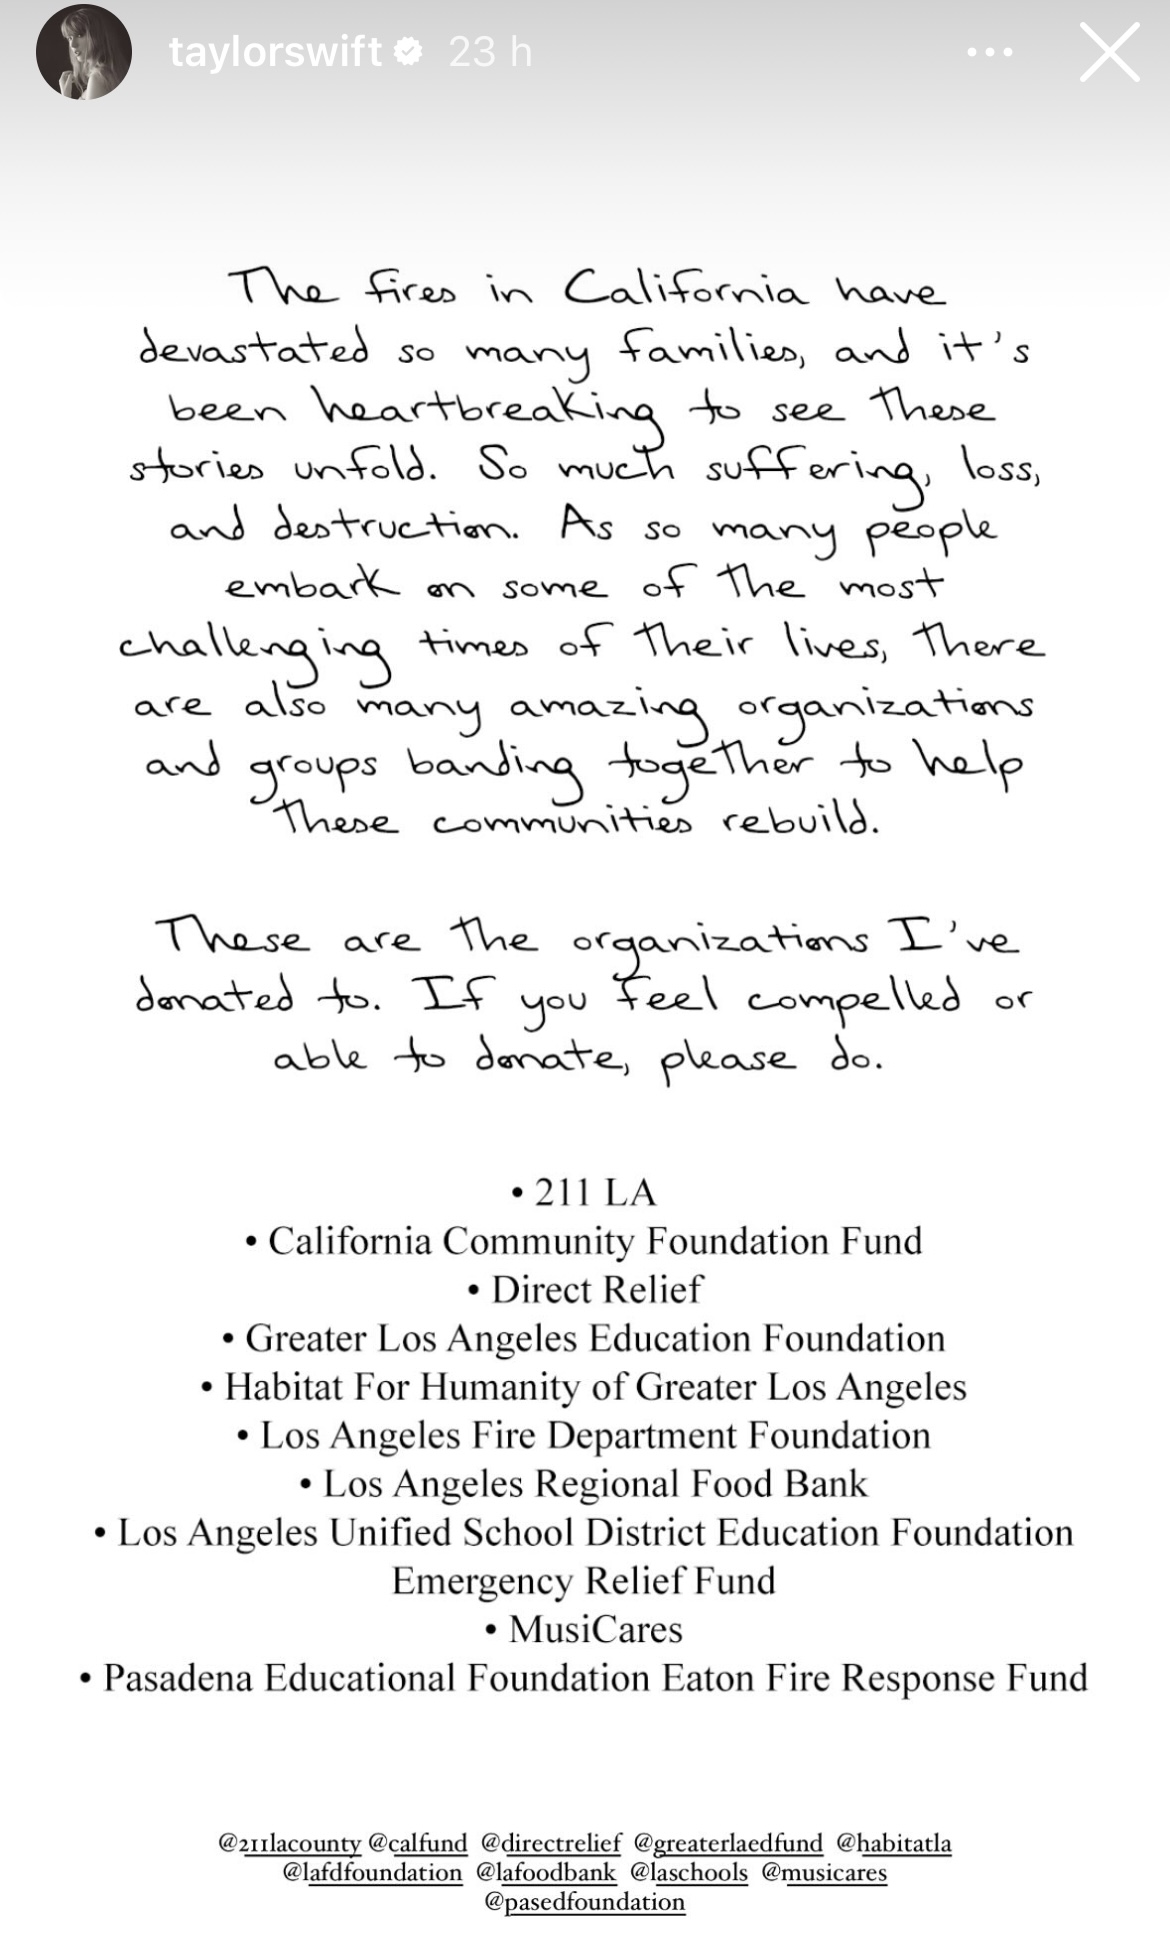 taylorswift 23 h
The fires in California have
devastated so many families, and it's
been heartbreaking to see these
stories unfold. So much suffering, loss,
and destruction. As so many people
embark on some of the most
challenging times of their lives, there
are also many amazing organizations
and groups banding together to help
these communities rebuild.
These are the organizations I've
donated to. If you feel compelled or
able to donate, please do.
• 211 LA
• California Community Foundation Fund
• Direct Relief
• Greater Los Angeles Education Foundation
• Habitat For Humanity of Greater Los Angeles
• Los Angeles Fire Department Foundation
• Los Angeles Regional Food Bank
• Los Angeles Unified School District Education Foundation
Emergency Relief Fund
• MusiCares
• Pasadena Educational Foundation Eaton Fire Response Fund
@211lacounty @calfund @directrelief @greaterlaedfund @habitatla
@lafdfoundation @lafoodbank @laschools @musicares
@pasedfoundation